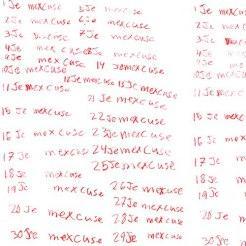 1 Je mexcuse 5 Je mexcuse
2 Je mexcuse 6 je mexcuse
3 Je mexcuse 7 Je mexcuse
4 Je mexcuse
9 Je mexcuse 14 Je mexcuse
10 Je mexcuse
11 Je mexcuse 12 Je mexcuse 13 Je mexcuse
21 Je mexcuse
15 Je mexcuse 22 Je mexcuse
16 Je mexcuse 23 Je mexcuse
17 Je mexcuse 24 Je mexcuse
25 Je mexcuse
18 Je mexcuse 26 Je mexcuse
19 Je mexcuse 27 Je mexcuse
20 Je mexcuse 28 Je mexcuse
30 Je mexcuse 29 Je mexcuse